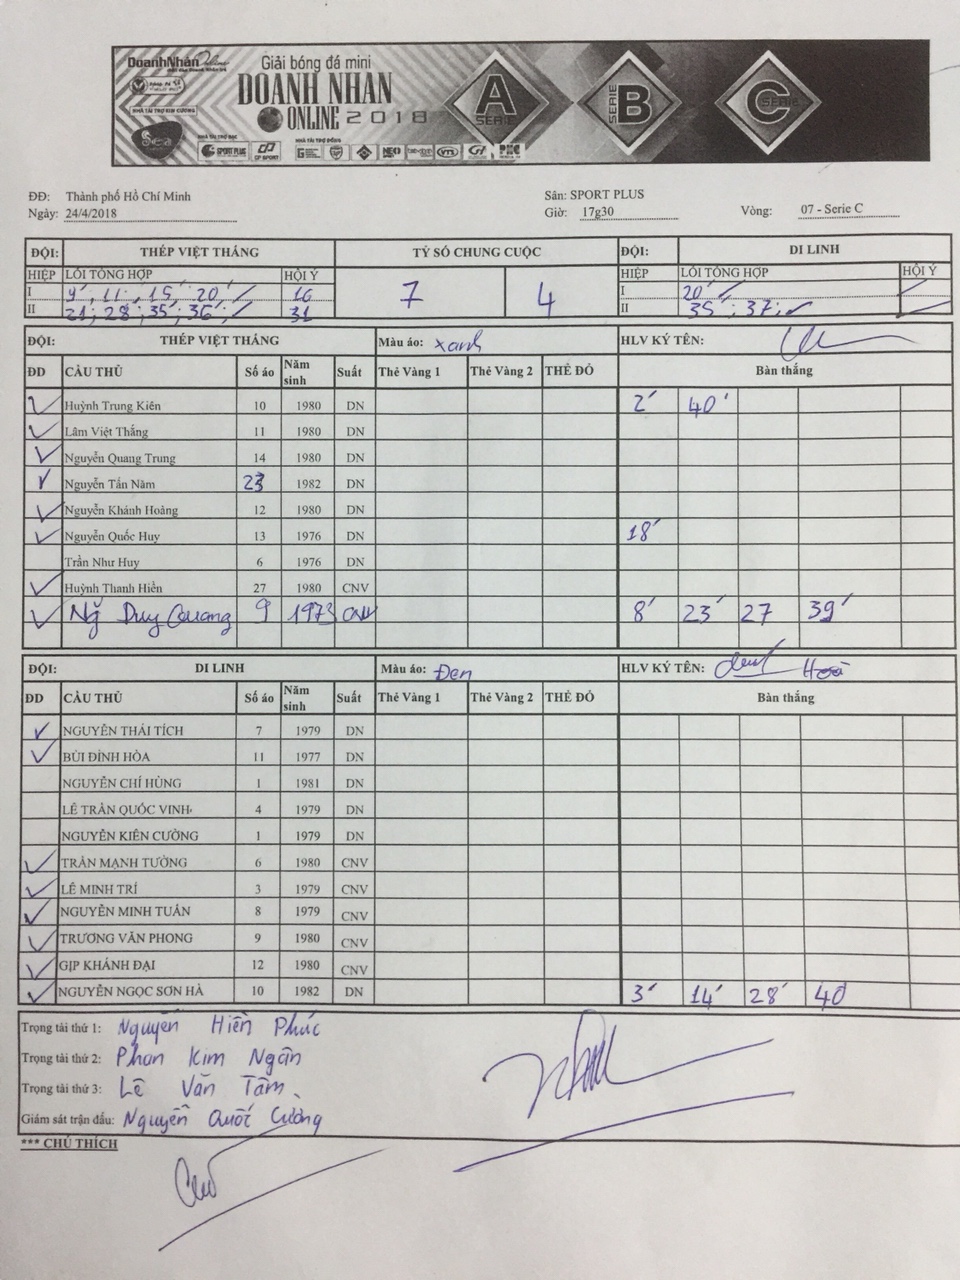 DoanhNhânOnline
NHÀ TÀI TRỢ KIM CƯƠNG
Sea
Giải bóng đá mini
DOANH NHAN
ONLINE 2018
NHÀ TÀI TRỢ BẠC NHÀ TÀI TRỢ ĐỒNG
SPORT PLUS CP SPORT NEO VTM
A SERIE SERIE B C SERIE
ĐĐ: Thành phố Hồ Chí Minh Sân: SPORT PLUS
Ngày: 24/4/2018 Giờ: 17g30 Vòng: 07 - Serie C
ĐỘI: THÉP VIỆT THẮNG TỶ SỐ CHUNG CUỘC ĐỘI: DI LINH
HIỆP LỖI TỔNG HỢP HỘI Ý 7 4 HIỆP LỖI TỔNG HỢP HỘI Ý
I 9', 11, 15, 20' 16 I 20'
II 21; 28'; 35'; 36'; 31 II 35'; 37;
ĐỘI: THÉP VIỆT THẮNG Màu áo: xanh HLV KÝ TÊN:
ĐD CẦU THỦ Số áo Năm sinh Suất Thẻ Vàng 1 Thẻ Vàng 2 THẺ ĐỎ Bàn thắng
Huỳnh Trung Kiên 10 1980 DN 2' 40'
Lâm Việt Thắng 11 1980 DN
Nguyễn Quang Trung 14 1980 DN
Nguyễn Tấn Năm 23 1982 DN
Nguyễn Khánh Hoàng 12 1980 DN
Nguyễn Quốc Huy 13 1976 DN 18'
Trần Như Huy 6 1976 DN
Huỳnh Thanh Hiền 27 1980 CNV
Ng̃ Duy Quang 9 1973 CNV 8' 23' 27 39'
ĐỘI: DI LINH Màu áo: Đen HLV KÝ TÊN: Hoà
ĐD CẦU THỦ Số áo Năm sinh Suất Thẻ Vàng 1 Thẻ Vàng 2 THẺ ĐỎ Bàn thắng
NGUYỄN THÁI TÍCH 7 1979 DN
BÙI ĐÌNH HÒA 11 1977 DN
NGUYỄN CHÍ HÙNG 1 1981 DN
LÊ TRẦN QUỐC VINH 4 1979 DN
NGUYỄN KIÊN CƯỜNG 1 1979 DN
TRẦN MẠNH TƯỜNG 6 1980 CNV
LÊ MINH TRÍ 3 1979 CNV
NGUYỄN MINH TUẤN 8 1979 CNV
TRƯƠNG VĂN PHONG 9 1980 CNV
GỊP KHÁNH ĐẠI 12 1980 CNV
NGUYỄN NGỌC SƠN HÀ 10 1982 DN 3' 14' 28' 40
Trọng tài thứ 1: Nguyễn Hiền Phúc
Trọng tài thứ 2: Phan Kim Ngân
Trọng tài thứ 3: Lê Văn Tâm
Giám sát trận đấu: Nguyễn Quốc Cường
*** CHÚ THÍCH